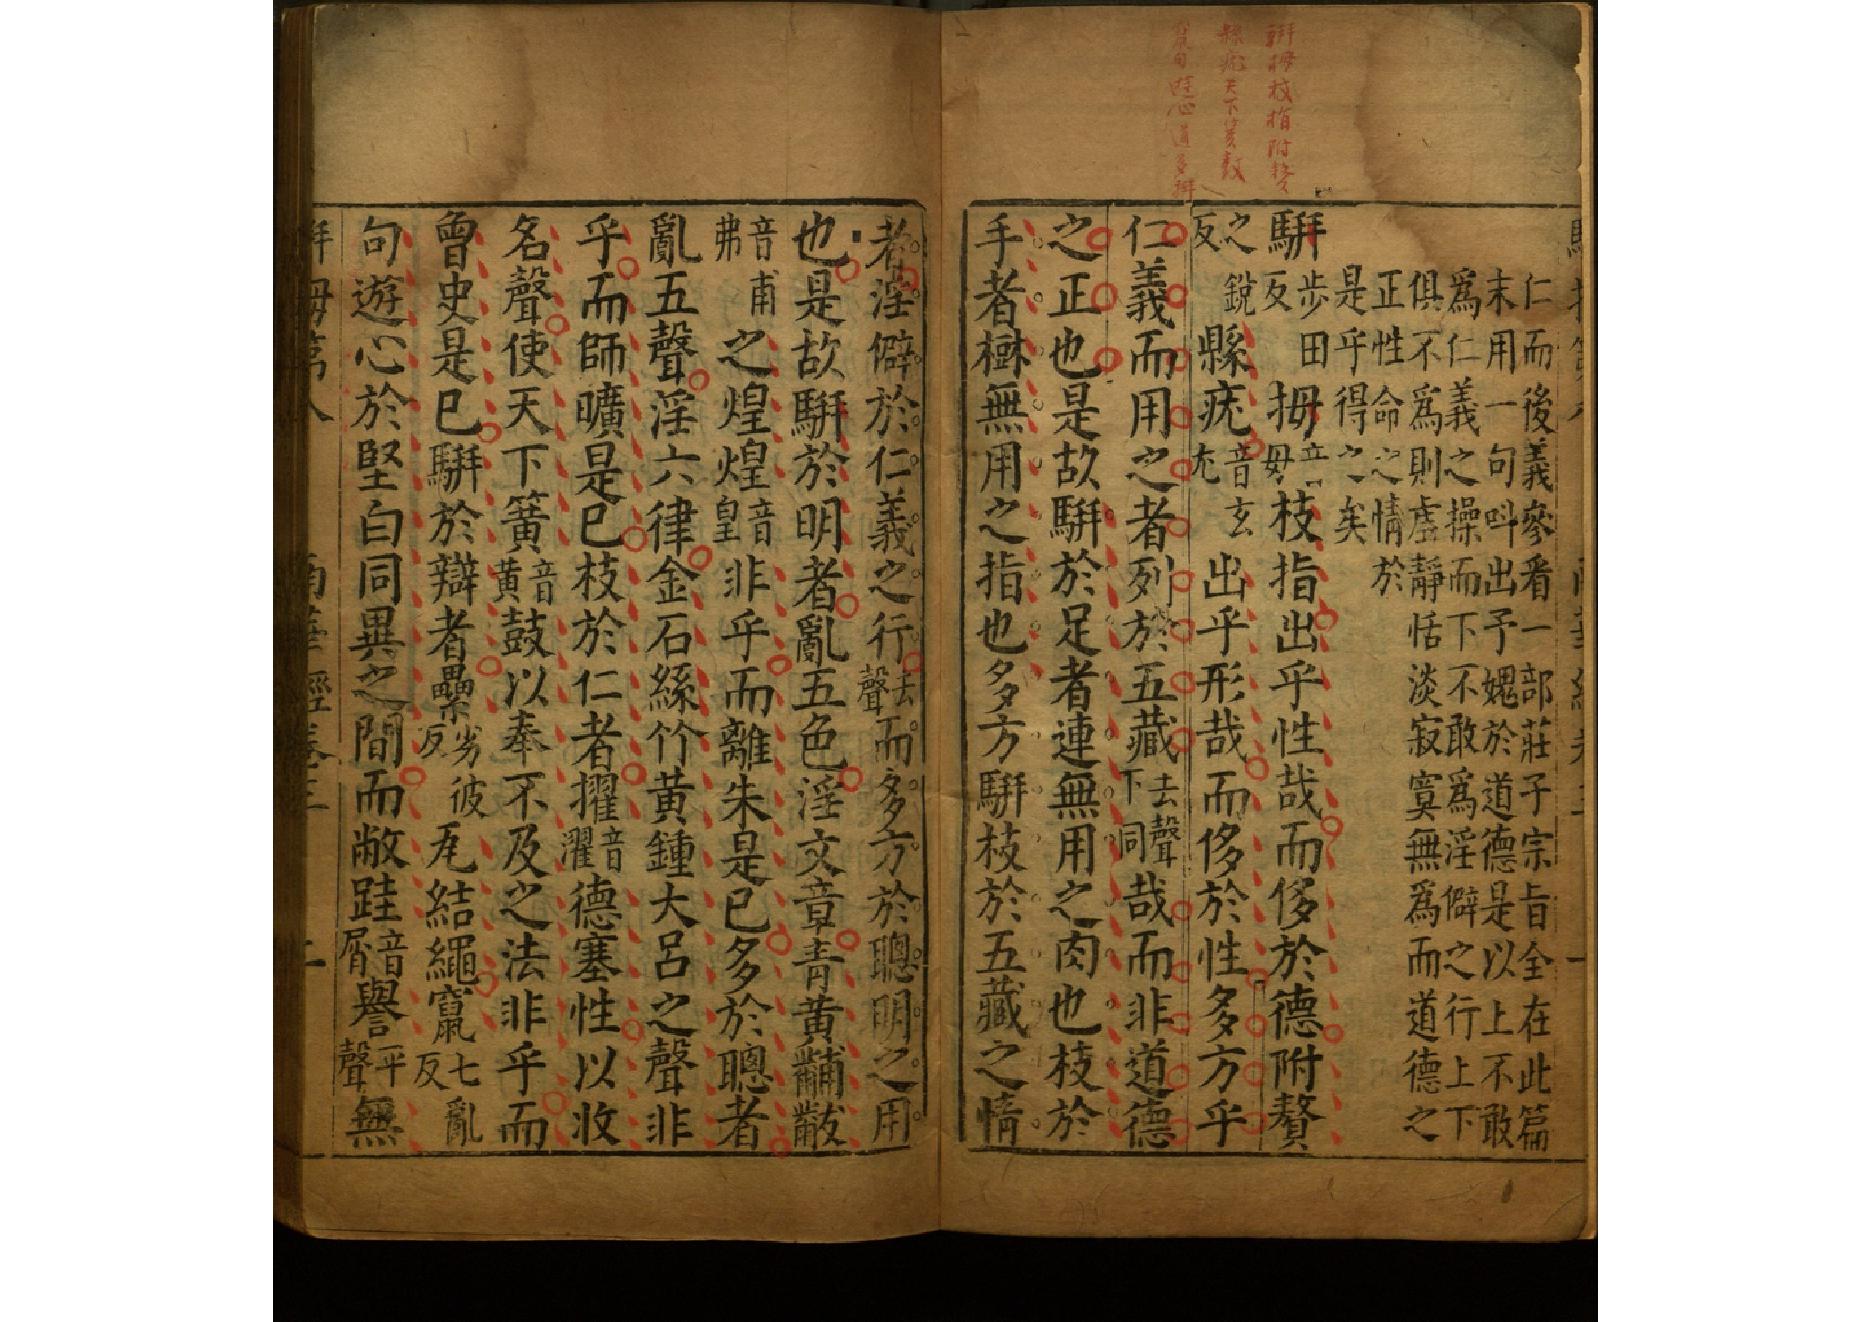 駢拇枝指附贅
縣疣天下簧鼓
仁而後義參看一部莊子宗旨全在此篇
末用一句叫出予媿於道德是以上不敢
爲仁義之操而下不敢爲淫僻之行上下
俱不爲則虛靜恬淡寂寞無爲而道德之
正性命之情於
是乎得之矣
駢步田反拇音母枝指出乎性哉而侈於德附贅
之銳反縣疣音玄尤出乎形哉而侈於性多方乎
仁義而用之者列於五藏去聲下同哉而非道德
之正也是故駢於足者連無用之肉也枝於
手者樹無用之指也多方駢枝於五藏之情
者淫僻於仁義之行去聲而多方於聰明之用
也是故駢於明者亂五色淫文章青黃黼黻
音甫弗之煌煌音皇非乎而離朱是已多於聰者
亂五聲淫六律金石絲竹黃鍾大呂之聲非
乎而師曠是已枝於仁者擢音濯德塞性以收
名聲使天下簧音黃鼓以奉不及之法非乎而
曾史是已駢於辯者纍劣彼反瓦結繩竄七亂反
句遊心於堅白同異之間而敝跬音屑譽平聲無
拇第八 南華經卷三 二